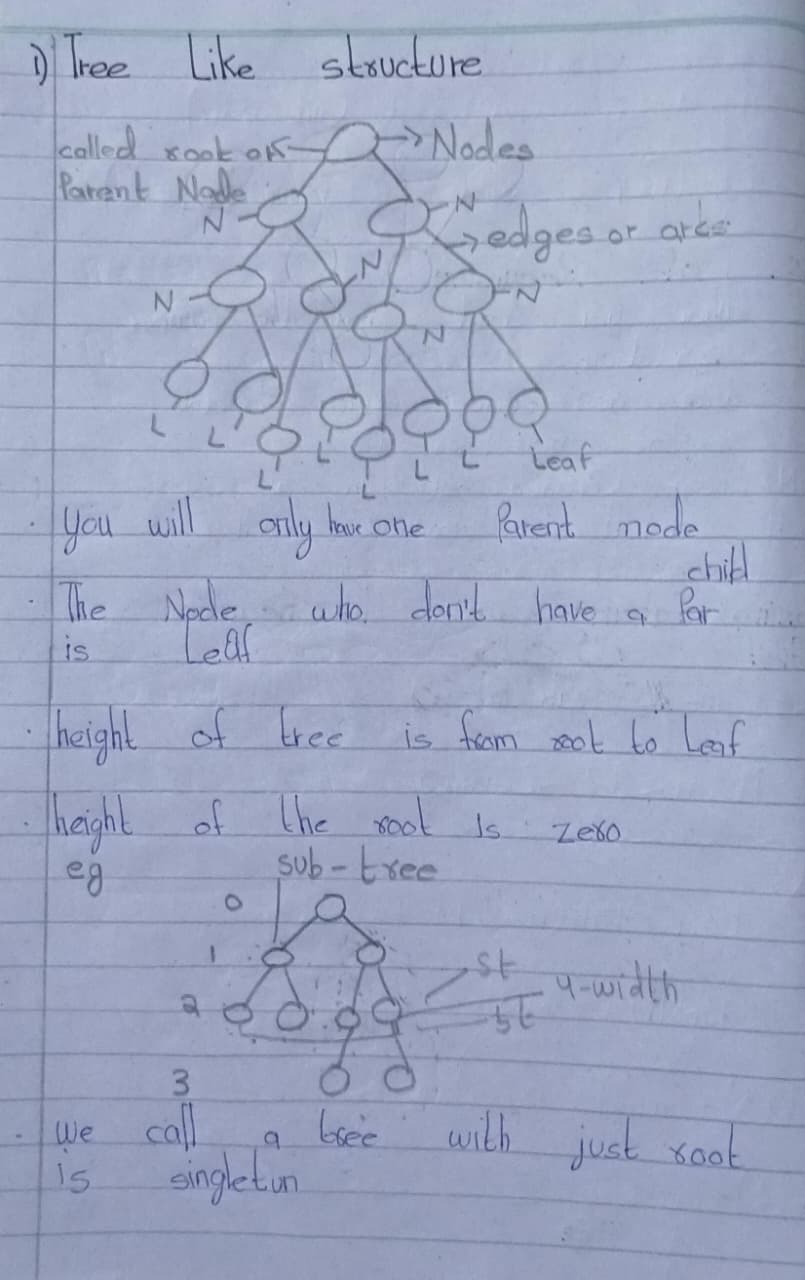 i) Tree Like structure
called root or → Nodes
Parent Node
N N
→ edges or arcs
N
N N
N
L L
L L L L L Leaf
L
. You will only have one Parent node
child
. The Node who don't have a Par
is Leaf
. height of tree is from root to Leaf
. height of the root Is zero
eg sub-tree
0
1 st
4-width
2 st
3
. we call a tree with just root
is singletun